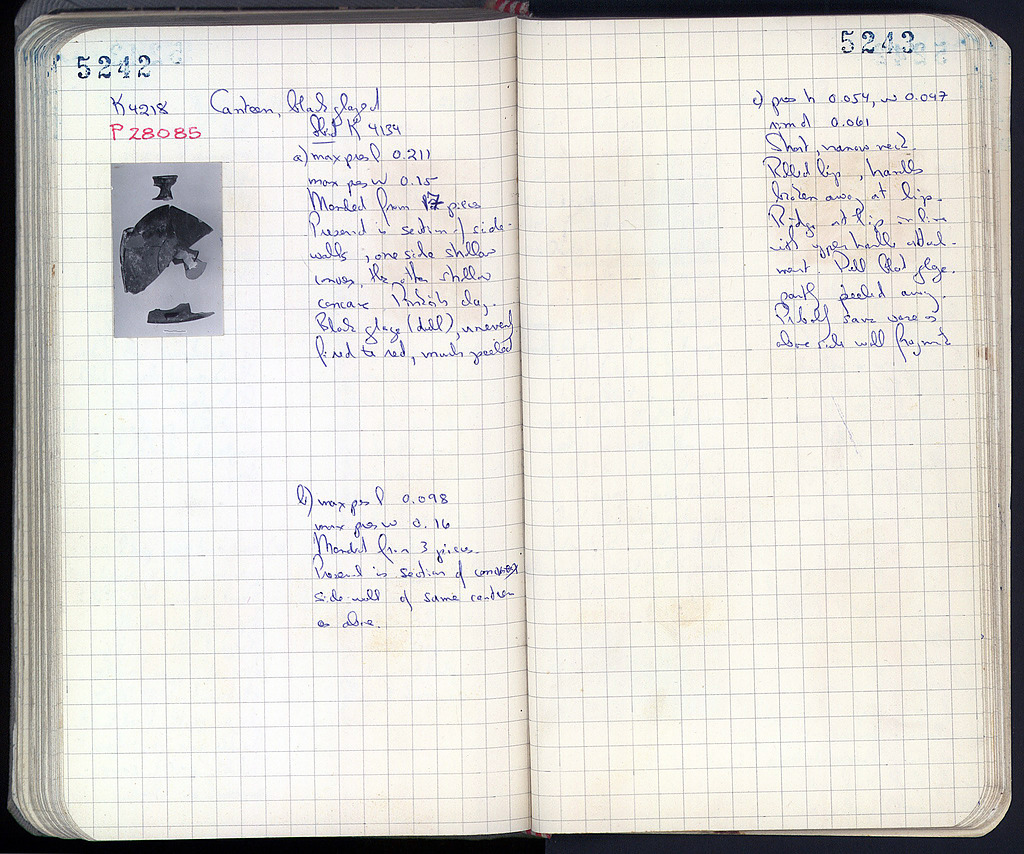 5242
K 4218 Canteen, black glazed
P 28085
K 4134
a) max pres l 0.211
max pres w 0.15
Mended from 17 pieces
Preserved is section of side-
walls; one side shallow
convex, the other shallow
concave. Pinkish clay.
Black glaze (dull), unevenly
fired to red, much peeled
b) max pres l 0.098
max pres w 0.16
Mended from 3 pieces.
Preserved is section of
side wall of same canteen
as above.
5243
c) pres h 0.054, w 0.047
rim d 0.061
Short, narrow neck.
Rolled lip, handles
broken away at lip.
Ridge at lip in line
with upper handle attach-
ment. Dull black glaze.
partly peeled away.
Probably same vase as
above side wall fragments